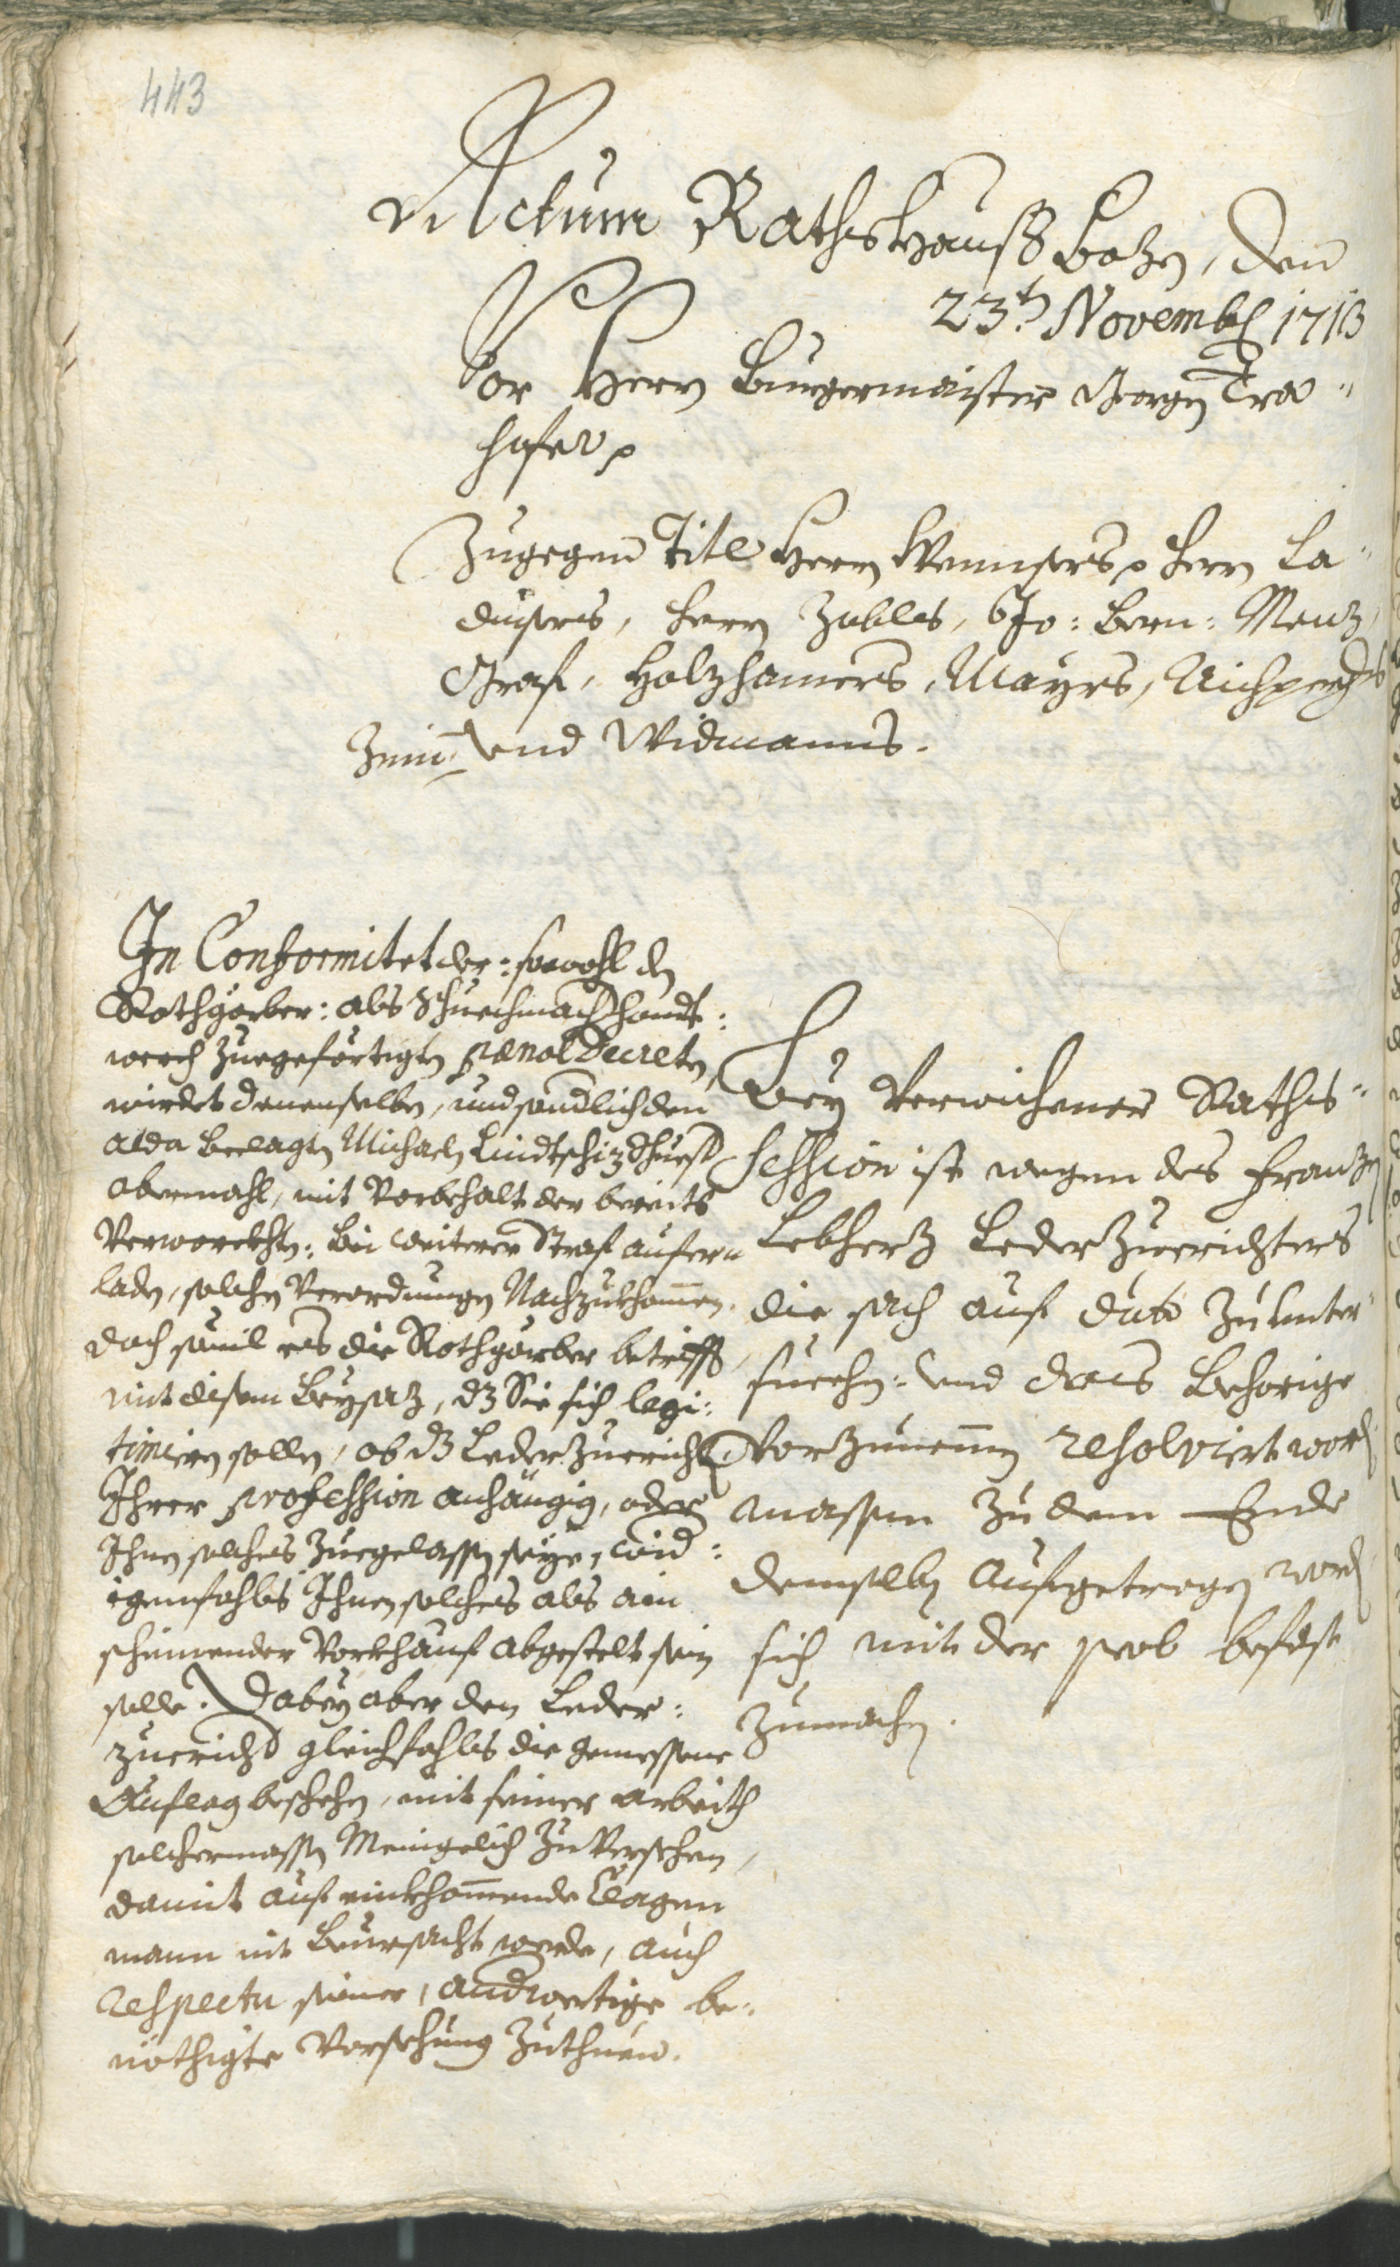 443
Actum Rathshauß Bozn, den
23tn Novemb 1713
Vor Herrn Burgermaister Georgn Tra-
hofer
Zugegen Titl Herrn Wenisers Herrn La-
diners, Herrn Zablls, Jo: Bern: Menz,
Graf, Holzhamers, Mayrs, Aichpergs
und Widmanns.
In Conformitet der: sowohl dn
Rothgörber: als Schuechmacher handt-
werch zuegeförtigtn pænal Decretn,
wirdet denenselbn, und sondlich den
alda beclagtn Michaeln Lindtschiz
abermahl, mit Vorbehalt der bereits
Verworchtn: bei weiterer Straf auferr
ladn, solchn Verordnungn Nachzukhommen.
doch souil es die Rothgörber betrifft,
mit disem beysaz, dz Sie sich legi-
timiern sollen, ob dz Lederzuericht
Ihrer profession anhängig, oder
Ihnen solches zuegelassn seye, wid-
rigenfahls Ihnen solches als ain
scheinender Vorkhauf abgestelt sein
solle. Dabey aber den Leder-
zuericht gleichfahls die gemessene
Auflag beschehn, mit seiner arbeith
solchermassn Menigelich zu Versehen,
damit auf einkhommende Clagen
mann nit beursacht werde, auch
respectu seiner, andwertige be-
nöthigte Vorsehung zuthuen.
Bey Verwichener Raths-
session ist wegen des Franzn
Lebherz Lederzuerichters
die sach auf dato zu unter-
suechn: und das behörige
Vorzunemmen resolviert wordn
massen zu dem Ende
demselbn aufgetragen wordn
sich mit der prob befast
zumachn.